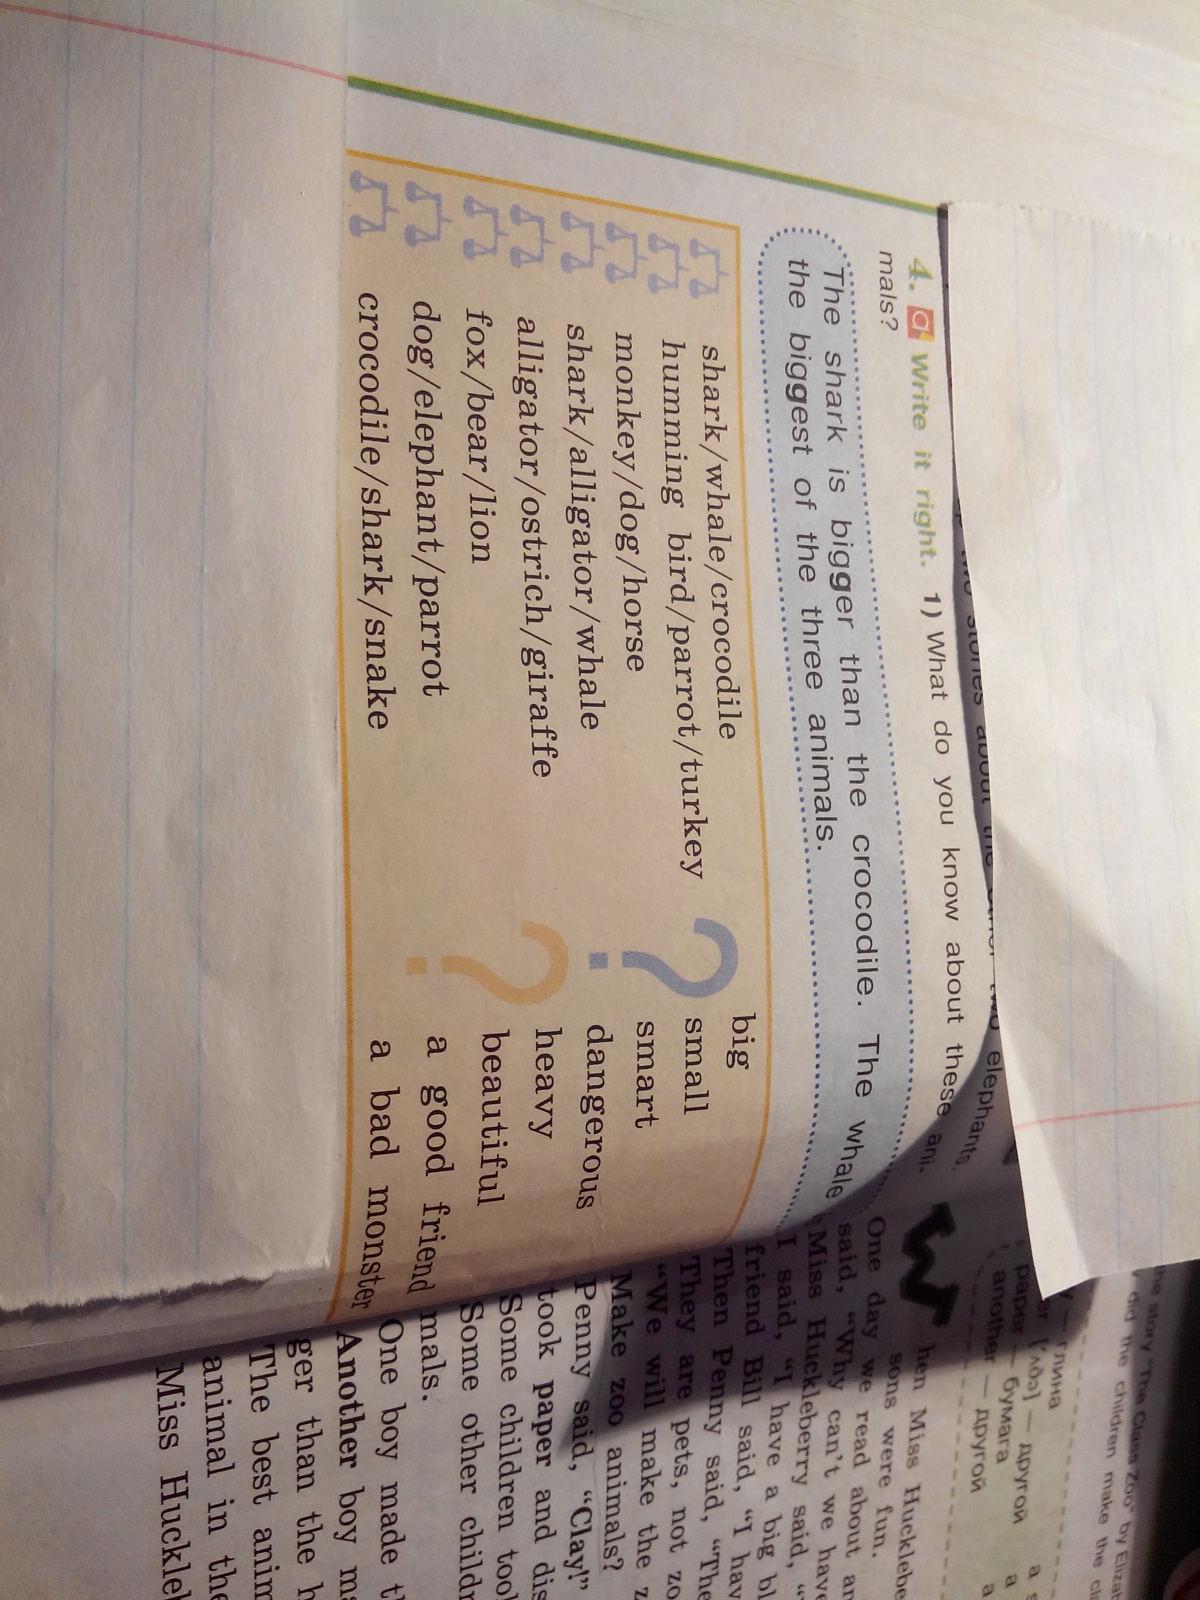 4. Write it right. 1) What do you know about these ani-
mals?
The shark is bigger than the crocodile. The whale
the biggest of the three animals.
shark/whale/crocodile big
humming bird/parrot/turkey small
monkey/dog/horse smart
shark/alligator/whale dangerous
alligator/ostrich/giraffe heavy
fox/bear/lion beautiful
dog/elephant/parrot a good friend
crocodile/shark/snake a bad monster
the story "The Class Zoo" by Elizab
did the children make the cl
глина
[ˈʌðə] — другой a
paper — бумага a
another — другой a
hen Miss Hucklebe
sons were fun.
One day we read about an
said, "Why can't we have
Miss Huckleberry said, "
I said, "I have a big bl
friend Bill said, "I hav
Then Penny said, "The
They are pets, not zo
"We will make the z
Make zoo animals?
Penny said, "Clay!"
took paper and dis
Some children took
Some other childr
mals.
One boy made t
Another boy ma
ger than the h
The best anim
animal in the
Miss Huckle